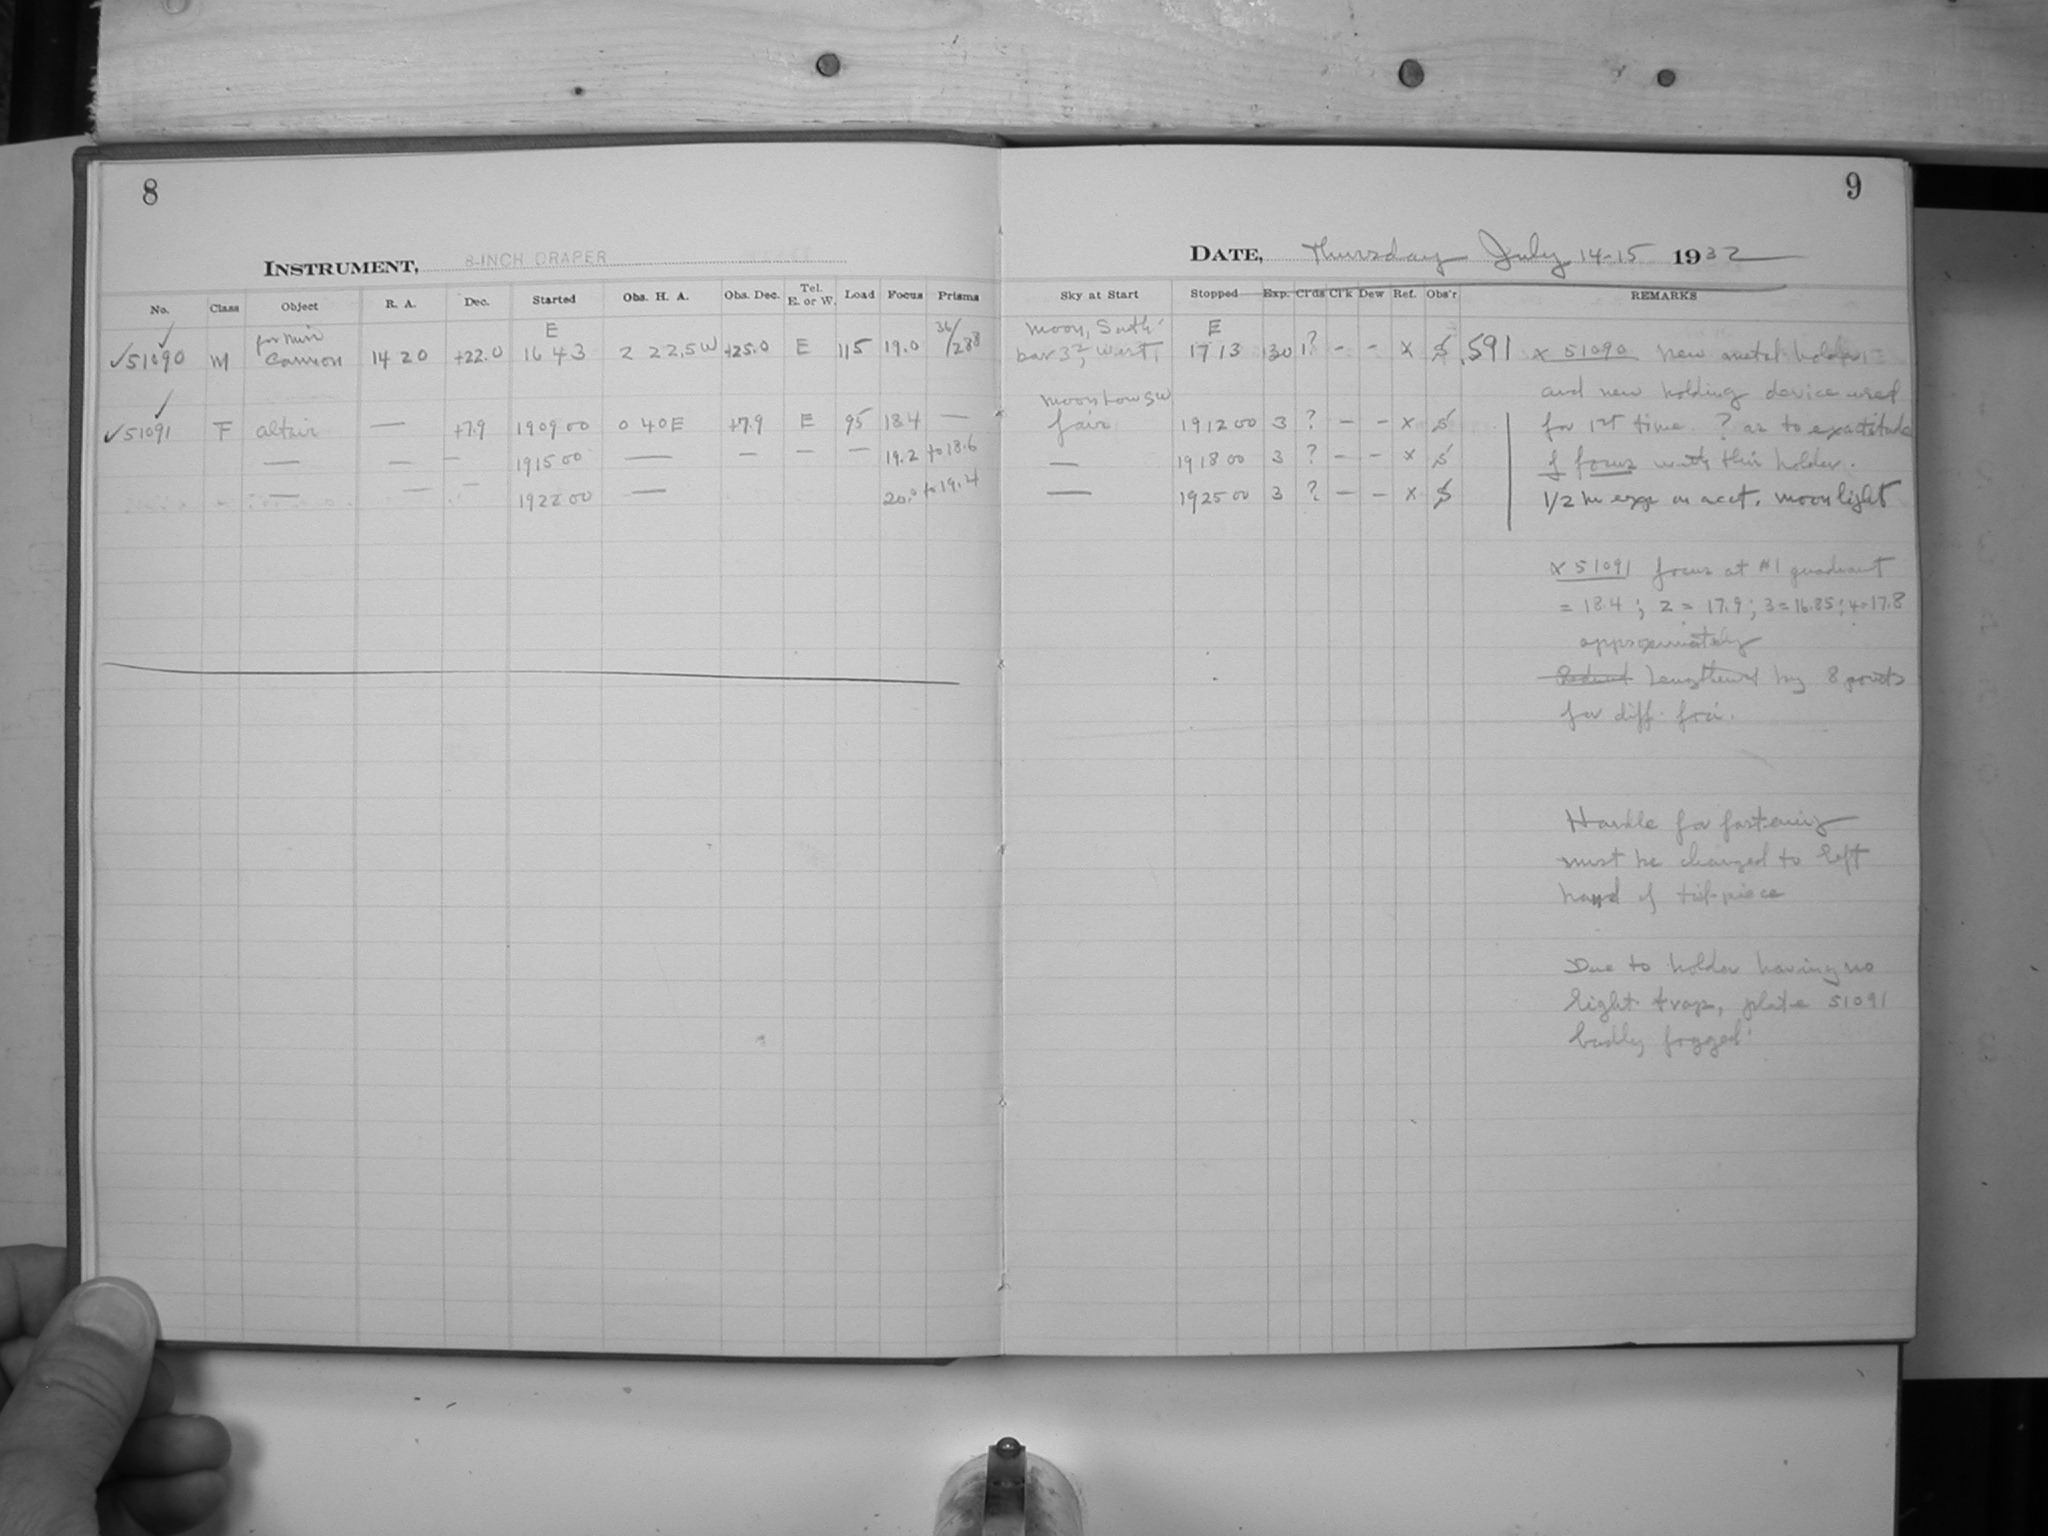 8
INSTRUMENT, 8-INCH DRAPER
No. Class Object R. A. Dec. Started Obs. H. A. Obs. Dec. Tel. E. or W. Load Focus Prisms
for Miss
✓51090 M Cannon 14 20 +22.0 E 16 43 2 22.5W +25.0 E 115 19.0
✓51091 F altair — +7.9 1909 00 0 40E +7.9 E 95 18.4 —
— — — 1915 00 — — — — 19.2 to 18.6
— — — 1922 00 — 20.0 to 19.4
9
DATE, Thursday July 14-15 1932
Sky at Start Stopped Exp. Cl'ds Cl'k Dew Ref. Obs'r REMARKS
moon, South E
west, 17 13 30 ? - - x .591 x 51090 new metal holder
and new holding device used
moon low SW
fair 1912 00 3 ? - - x for 1st time. ? as to exactitude
— 1918 00 3 ? - - x of focus with this holder.
— 1925 00 3 ? - - x 1/2 hr exp on acct. moonlight
x 51091 focus at #1 quadrant
= 18.4 ; 2 = 17.9 ; 3 = 16.85 ; 4 = 17.8
approximately
Lengthened by 8 points
for diff. foci.
Handle for fastening
must be changed to left
hand of tail-piece
Due to holder having no
light trap, plate 51091
badly fogged